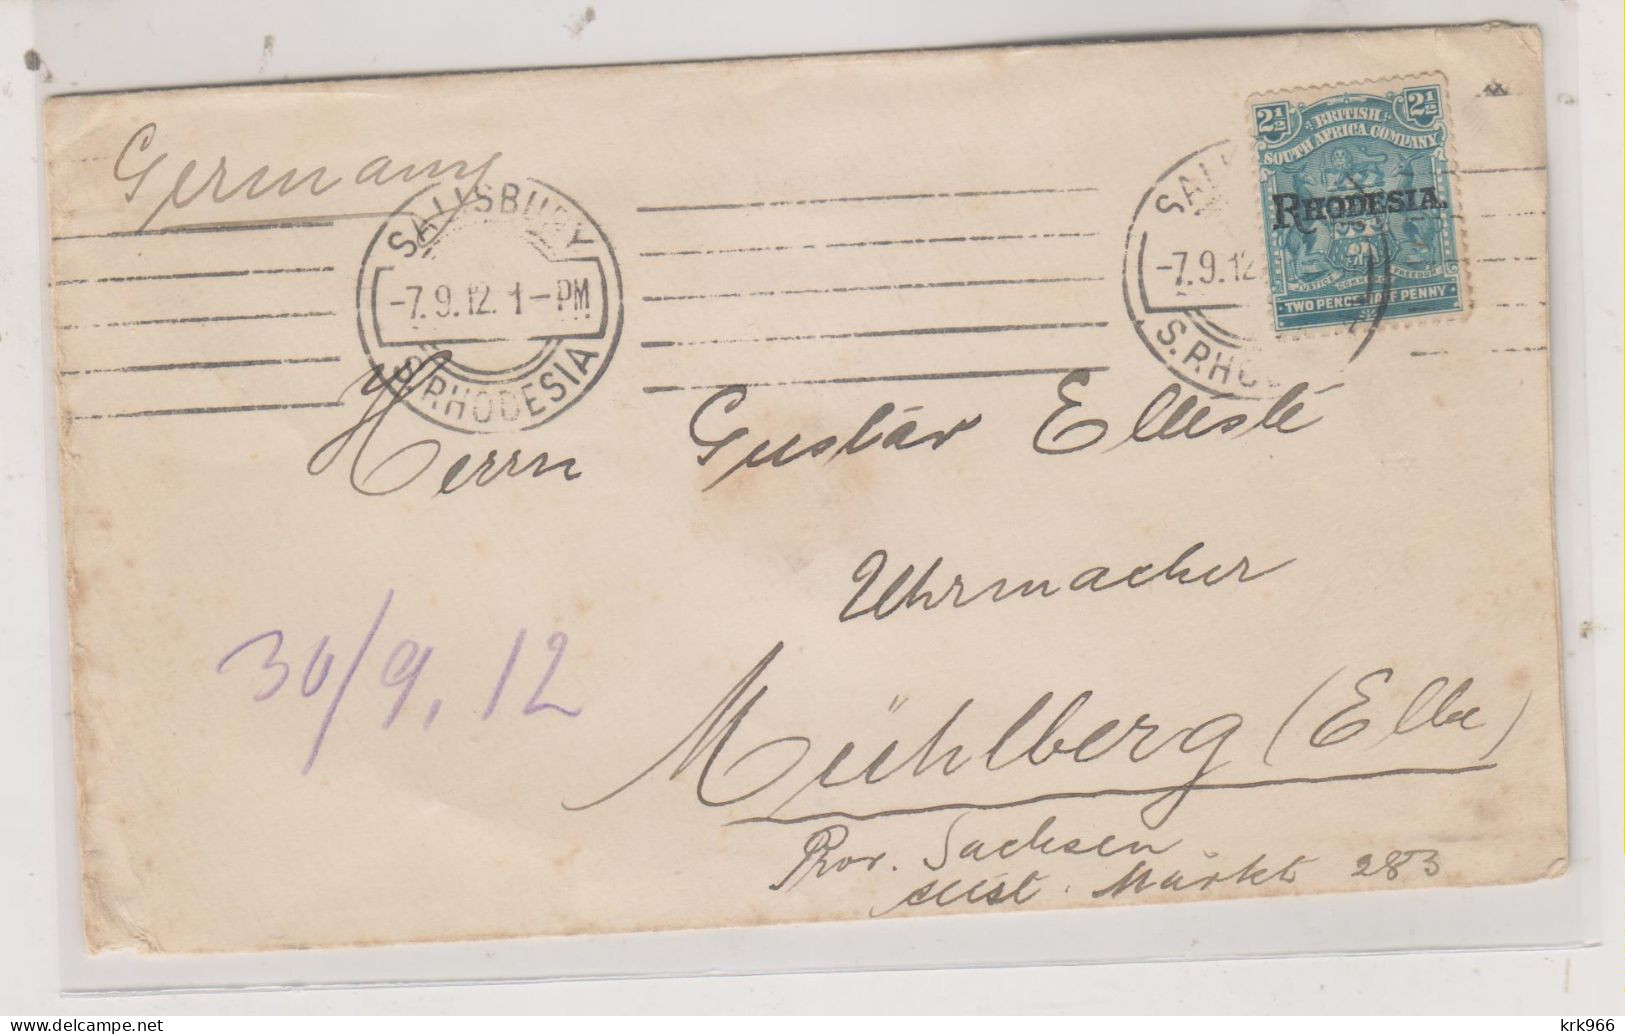 Germany
SALISBURY
-7.9.12. 1-PM
S. RHODESIA
-7.9.12
S. RHO
2½ 2½
BRITISH
SOUTH AFRICA COMPANY
RHODESIA.
JUSTICE COMMERCE FREEDOM
TWO PENCE HALF PENNY
Herrn Gustav
Uhrmacher
30/9.12
Mühlberg (Elbe)
Prov. Sachsen
Markt 283
krk966